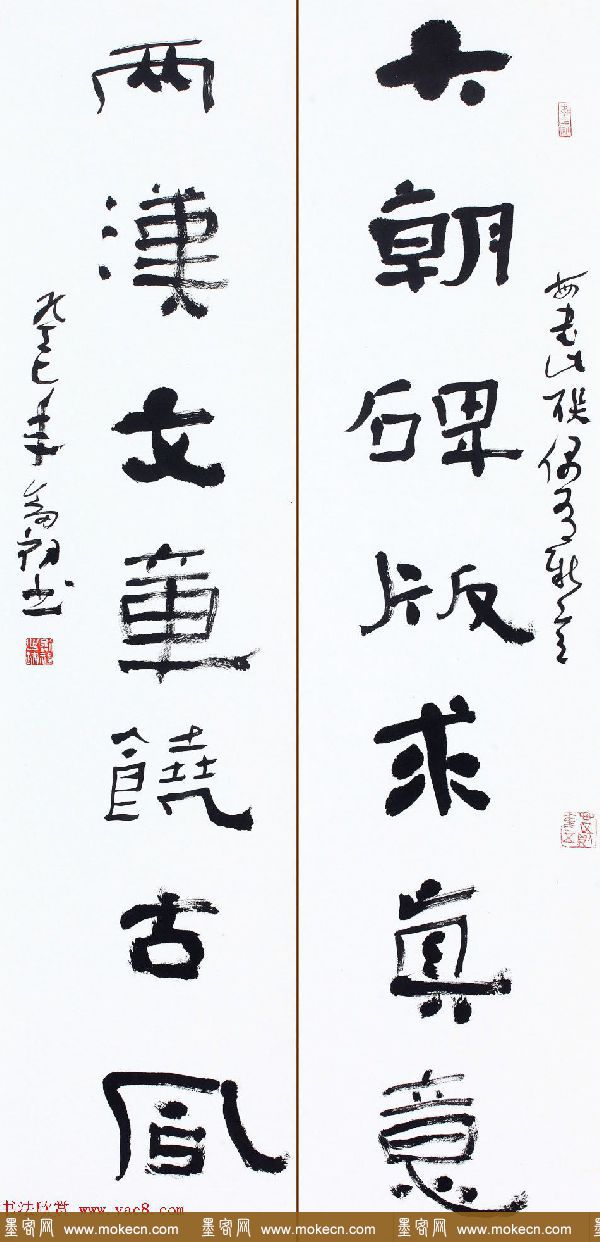 每書此联偶有新意
六朝碑版求真意
两漢文章饒古風
书法欣赏 www.yac8.com
墨客网 www.mokecn.com 墨客网 www.mokecn.com 墨客网 www.mokecn.com